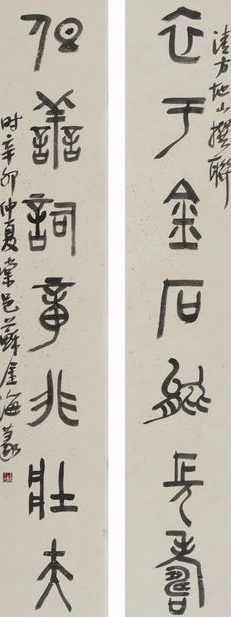 清方地山撰聯
于金石能長壽
但善詞章非壯夫
时辛卯仲夏棠邑蘇金海篆